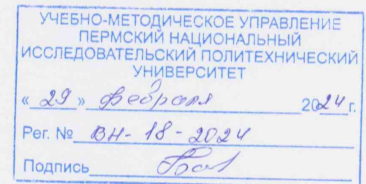 УЧЕБНО-МЕТОДИЧЕСКОЕ УПРАВЛЕНИЕ
ПЕРМСКИЙ НАЦИОНАЛЬНЫЙ
ИССЛЕДОВАТЕЛЬСКИЙ ПОЛИТЕХНИЧЕСКИЙ
УНИВЕРСИТЕТ
« 29 » февраля 2024 г.
Рег. № ВН-18-2024
Подпись